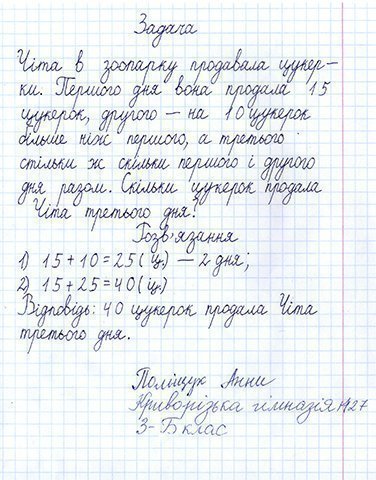 Задача
Чіта в зоопарку продавала цукер-
ки. Першого дня вона продала 15
цукерок, другого – на 10 цукерок
більше ніж першого, а третього
стільки ж скільки першого і другого
дня разом. Скільки цукерок продала
Чіта третього дня?
Розв'язання
1) 15+10=25(ц.) – 2 дня;
2) 15+25=40(ц.)
Відповідь: 40 цукерок продала Чіта
третього дня.
Поліщук Анни
Криворізька гімназія №27
3-Б клас